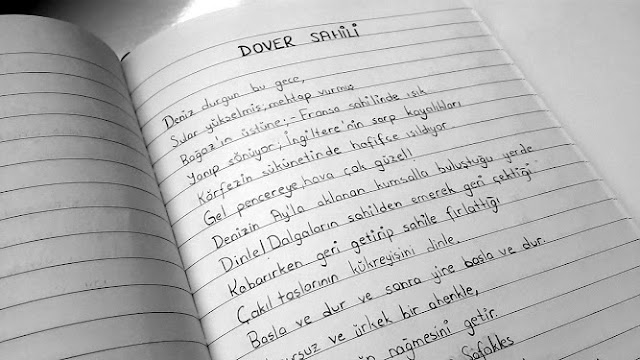 DOVER SAHİLİ
Deniz durgun bu gece,
Sular yükselmiş, mehtap vurmuş
Boğaz'ın üstüne; - Fransa sahilinde ışık
Yanıp sönüyor; İngiltere'nin sarp kayalıkları
Körfezin sükünetinde hafifce ışıldıyor.
Gel pencereye, hava çok güzel!
Denizin Ayla aklanan kumsalla buluştuğu yerde
Dinle! Dalgaların sahilden emerek geri çektiği
Kabarırken geri getirip sahile fırlattığı
Çakıl taşlarının kükreyişini dinle.
Başla ve dur ve sonra yine başla ve dur.
ve ürkek bir ahenkle,
nağmesini getir.
Sofakles